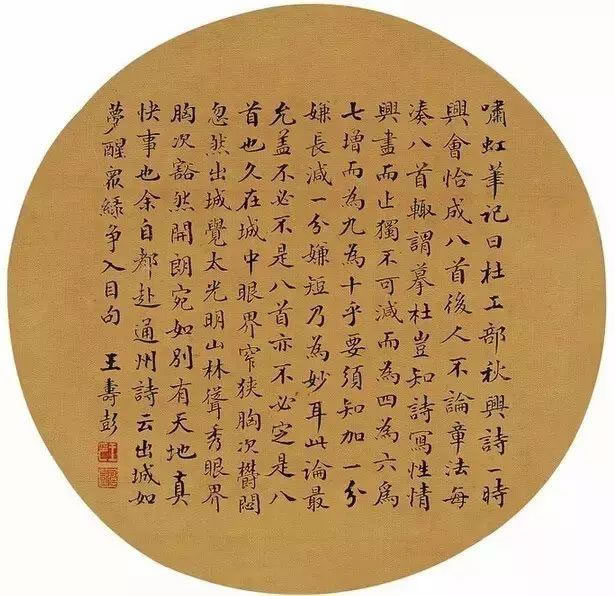 嘯虹筆記曰杜工部秋興詩一時
興會恰成八首後人不論章法每
湊八首輒謂摹杜豈知詩寫性情
興盡而止獨不可減而為四為六為
七增而為九為十乎要須知加一分
嫌長減一分嫌短乃為妙耳此論最
允蓋不必不是八首亦不必定是八
首也久在城中眼界窄狹胸次欝悶
忽然出城覺太光明山林聳秀眼界
胸次豁然開朗宛如別有天地真
快事也余自都赴通州詩云出城如
夢醒眾緑争入目句
王壽彭